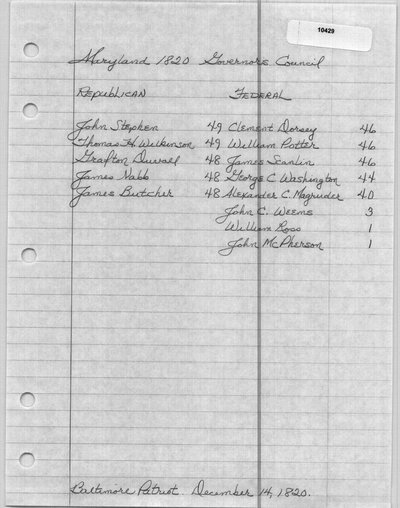 10429
Maryland 1820 Governors Council
Republican Federal
John Stephen 49 Clement Dorsey 46
Thomas H. Wilkinson 49 William Potter 46
Grafton Duvall 48 James Scanlin 46
James Nabb 48 George C Washington 44
James Butcher 48 Alexander C. Magruder 40
John C. Weems 3
William Ross 1
John McPherson 1
Baltimore Patriot. December 14, 1820.